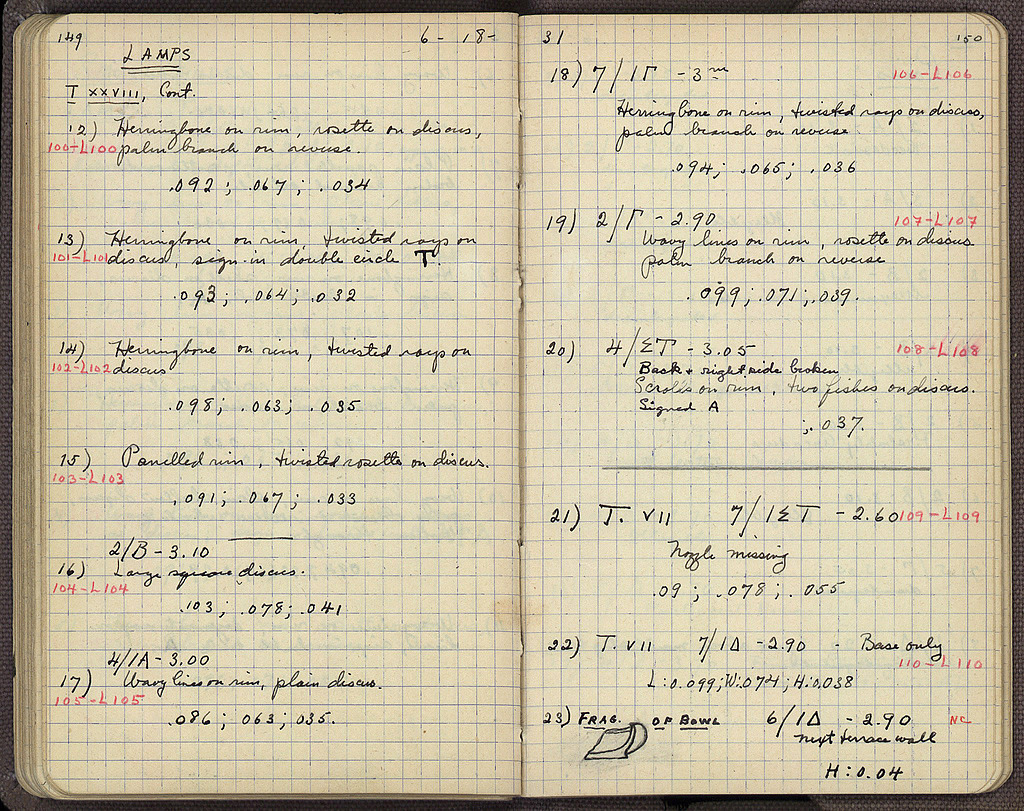 149
6 - 18 -
LAMPS
T XXVIII, Cont.
12) Herringbone on rim, rosette on discus,
100-L100 palm branch on reverse.
.092 ; .067 ; .034
13) Herringbone on rim, twisted rays on
101-L101 discus, sign in double circle T.
.093; .064; .032
14) Herringbone on rim, twisted rays on
102-L102 discus
.098; .063; .035
15) Panelled rim, twisted rosette on discus.
103-L103
.091; .067; .033
2/B - 3.10
16) Large square discus.
104-L104
.103; .078; .041
4/1A - 3.00
17) Wavy lines on rim, plain discus.
105-L105
.086 ; 063 ; 035.
31
150
18) 7/1Γ - 3 m
106-L106
Herringbone on rim, twisted rays on discus,
palm branch on reverse
.094; .065; .036
19) 2/Γ - 2.90
107-L107
Wavy lines on rim, rosette on discus
palm branch on reverse
.099; .071; .039.
20) 4/ΣT - 3.05
108-L108
Back + right side broken
Scrolls on rim, two fishes on discus.
Signed A
;.037.
21) T. VII 7/1ΣT - 2.60 109-L109
Nozzle missing
.09 ; .078 ; .055
22) T. VII 7/1Δ - 2.90 - Base only
110-L110
L:0.099; W:074; H:0.038
23) FRAG. OF BOWL 6/1Δ - 2.90 NC
next terrace wall
H: 0.04